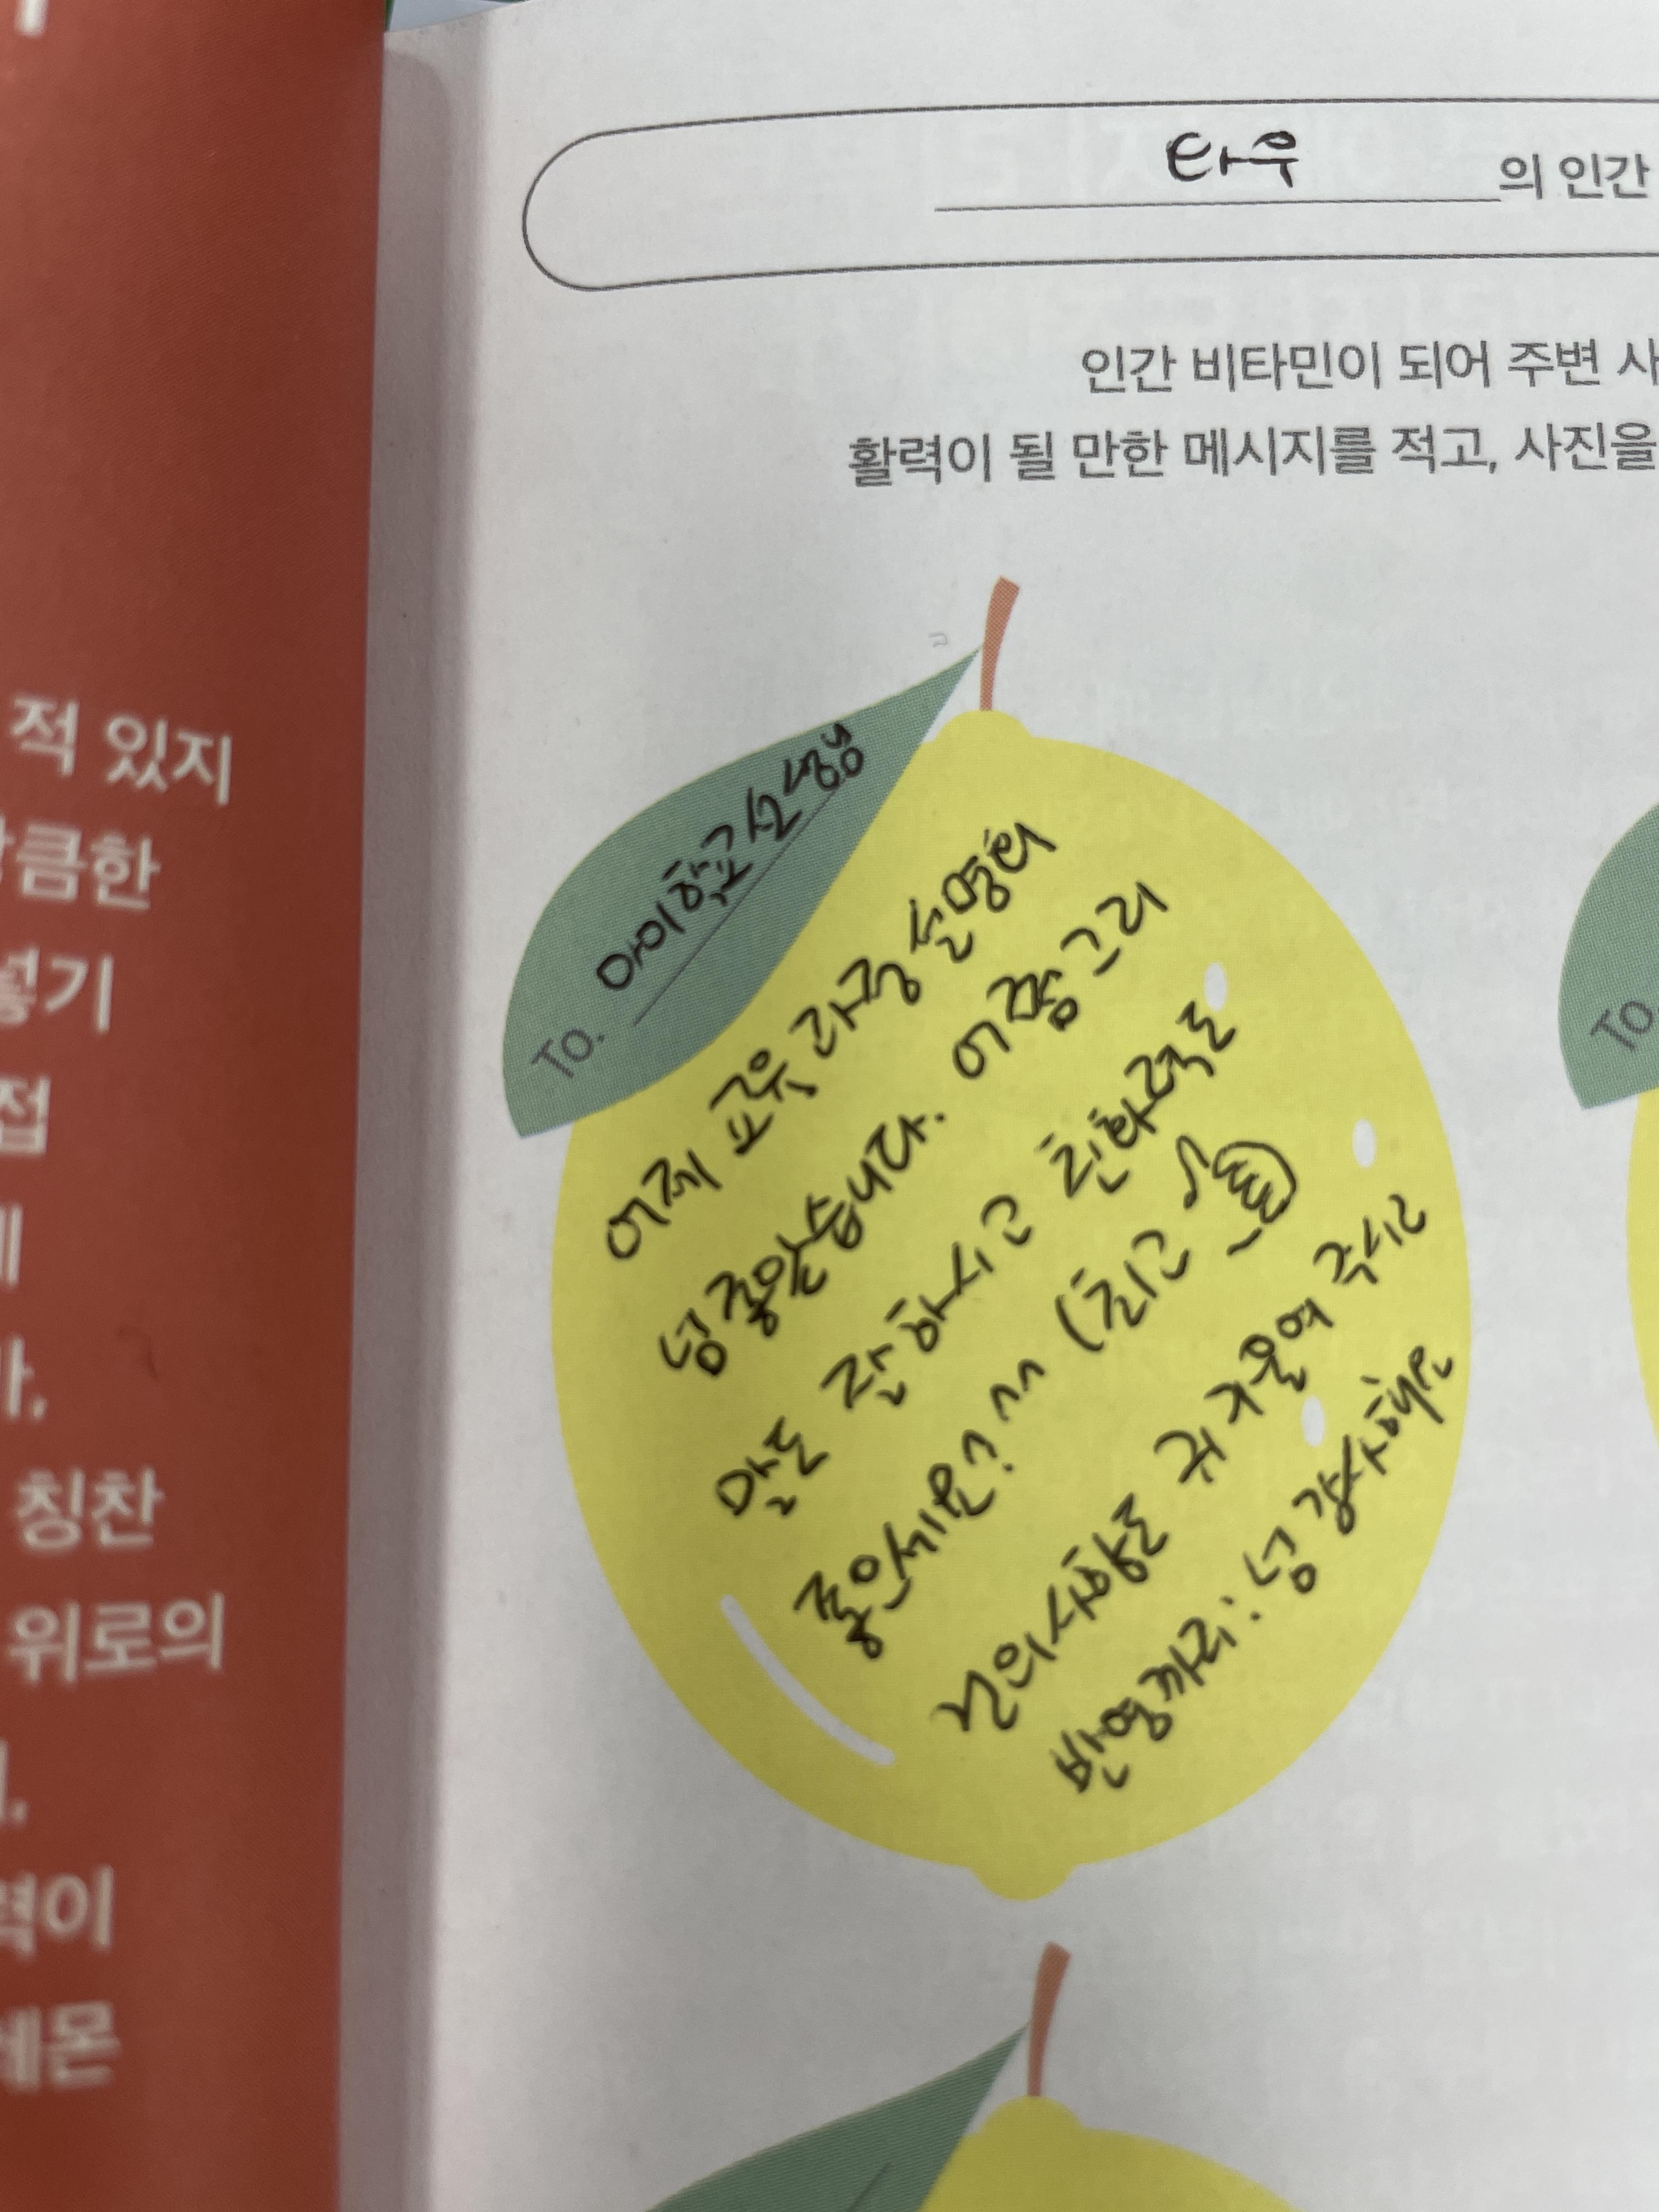 적 있지
큼한
넣기
접
칭찬
위로의
력이
레몬
타우의 인간
인간 비타민이 되어 주변 사
활력이 될 만한 메시지를 적고, 사진을
To. 아이학교 선생
어제 교육 과정 설명회
넝 좋았습니다. 어쩜 그리
말도 잘하시고 친화력도
좋으세요? ^^ (최고
건의사항도 귀 기울여 주시고
반영까지! 넝 감사해요
To.